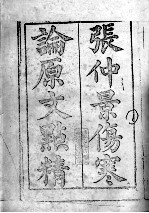 張仲景傷寒
論原文點精